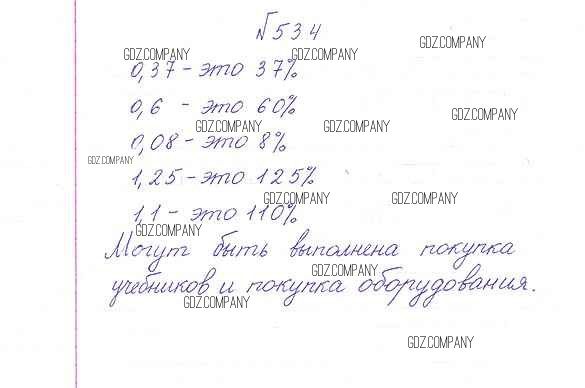 №534
GDZ.COMPANY GDZ.COMPANY GDZ.COMPANY
0,37 - это 37%
0,6 - это 60%
GDZ.COMPANY GDZ.COMPANY GDZ.COMPANY
0,08 - это 8%
GDZ.COMPANY
1,25 - это 125%
GDZ.COMPANY GDZ.COMPANY
1,1 - это 110%
GDZ.COMPANY
Могут быть выполнена покупка
GDZ.COMPANY
учебников и покупка оборудования.
GDZ.COMPANY
GDZ.COMPANY